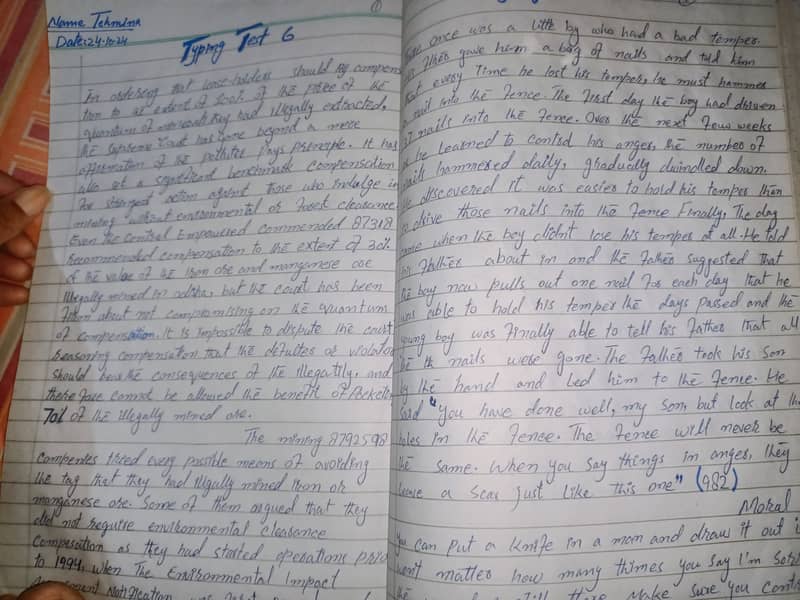 Name Tehmina
Date:24-10-24
Typing Test 6
In ordering that lease-holders should pay compens
tion to at extent of 100% of the price of the
quantum of minerals they had illegally extracted,
the Supreme Court has gone beyond a mere
affirmation of the polluter pays principle. It has
also set a significant benchmark compensation
for strongest action against those who indulge in
mining without environmental or forest clearance.
Even the Central Empowered commended 87318
Recommended compensation to the extent of 30%
of the value of the Iron ore and manganese ore
Illegally mined in odisha, but the court has been
about not compromising on the quantum
of compensation. It is impossible to dispute the court
Reasoning compensation that the or violator
should bear the consequences of the illegality, and
there fore cannot be allowed the benefit of
70% of the illegally mined ore.
The mining 8792598
Companies tried every possible means of avoiding
the tag that they had illegally mined Iron or
manganese ore. Some of them argued that they
did not require environmental clearance
Compesation as they had started operations prio
to 1994, when The Environmental Impact
Notification was
①
There once was a little by who had a bad temper.
His Father gave him a bag of nails and told him
that every time he lost his temper, he must hammer
a nail into the fence. The first day the boy had driven
37 nails into the fence. Over the next few weeks
as he learned to control his anger, the number of
nails hammered daily, gradually dwindled down.
He discovered it was easier to hold his temper then
to drive those nails into the fence Finally, The day
came when the boy didn't lose his temper at all. He told
his father about im and the father suggested that
the boy now pulls out one nail for each day that he
was able to hold his temper the days passed and the
young boy was finally able to tell his father that all
the nails were gone. The father took his son
by the hand and led him to the fence. He
said "You have done well, my son, but look at the
holes in the fence. The fence will never be
the same. When you say things in anger, they
leave a scar just like this one" (982)
Moral
You can put a knife in a man and draw it out i
won't matter how many thimes you say I'm sorr
the there Make sure you contr